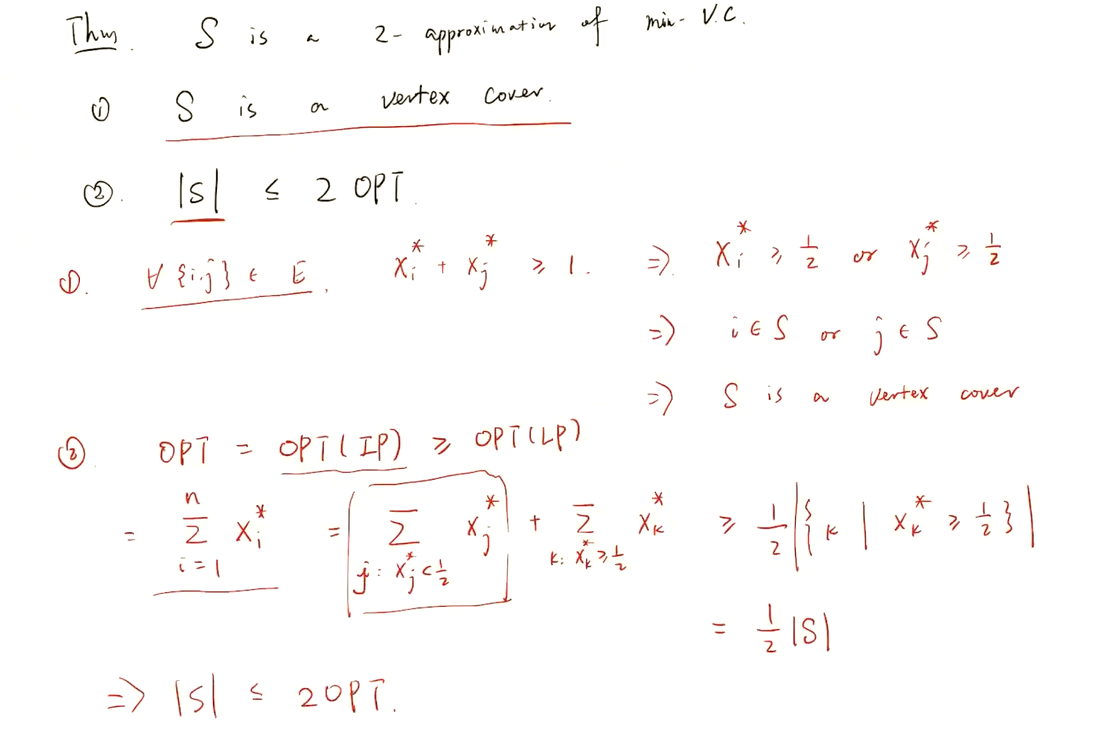 Thm. S is a 2-approximation of min-V.C.
① S is a vertex cover.
②. |S| ≤ 2 OPT.
①. ∀ {i,j} ∈ E, x_i^* + x_j^* ≥ 1. ⇒ x_i^* ≥ 1/2 or x_j^* ≥ 1/2
⇒ i ∈ S or j ∈ S
⇒ S is a vertex cover
② OPT = OPT(IP) ≥ OPT(LP)
= ∑_{i=1}^{n} x_i^* = ∑_{j: x_j^* < 1/2} x_j^* + ∑_{k: x_k^* ≥ 1/2} x_k^* ≥ 1/2 |{k | x_k^* ≥ 1/2}|
= 1/2 |S|
⇒ |S| ≤ 2OPT.